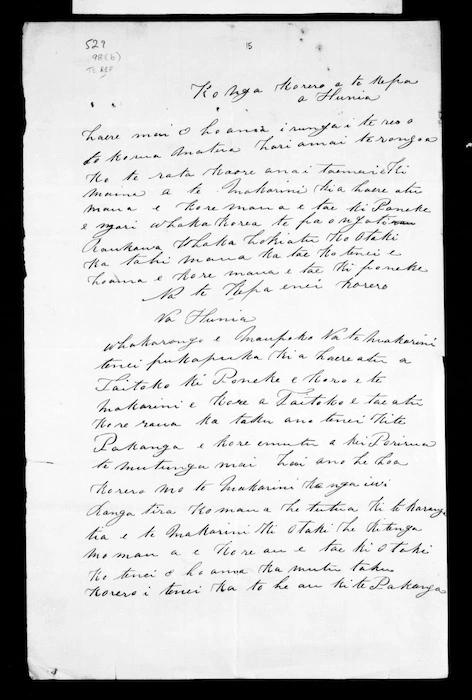 529
98(6)
TE REF
15
Ko Nga Korero a te Kepa
a Hunia
haere mai e hoama i runga i te reo o
to korua matua hari amai te rongoa
Ko te rata kaore ana i taemai Ki
maina a te Makarini Kia haere atu
maua e kore maua e tae ki Poneke
e mari whaka korea te pa o ngati
Raukawa Whaka hokiatu Ko Otaki
Ka tahi maua ka tae Ko tenei e
hoama e kore maua e tae ki poneke
Na te Kepa enei korero
Na Hunia
Whakarongo e Maupoko Na te Makarini
tenei pukapuka Kia haere atu a
Taitoko Ki Poneke e Koro e te
Makarini e Kore a Taitoko e tae atu
Kore raua ka taku ano tenei Kite
Pakanga e kore e mutu a ki Porirua
te mutunga mai hai ano he hoa
Korero mo te Makarini Ko nga iwi
Ranga tira Ko maua he tutua Ki te karanga
tia e te Makarini Ki Otaki he Ketenga
mo maua e Kore au e tae ki Otaki
Ko tenei e hoama Ka mutu taku
Korero i tenei Ka to he au ki te Pakanga